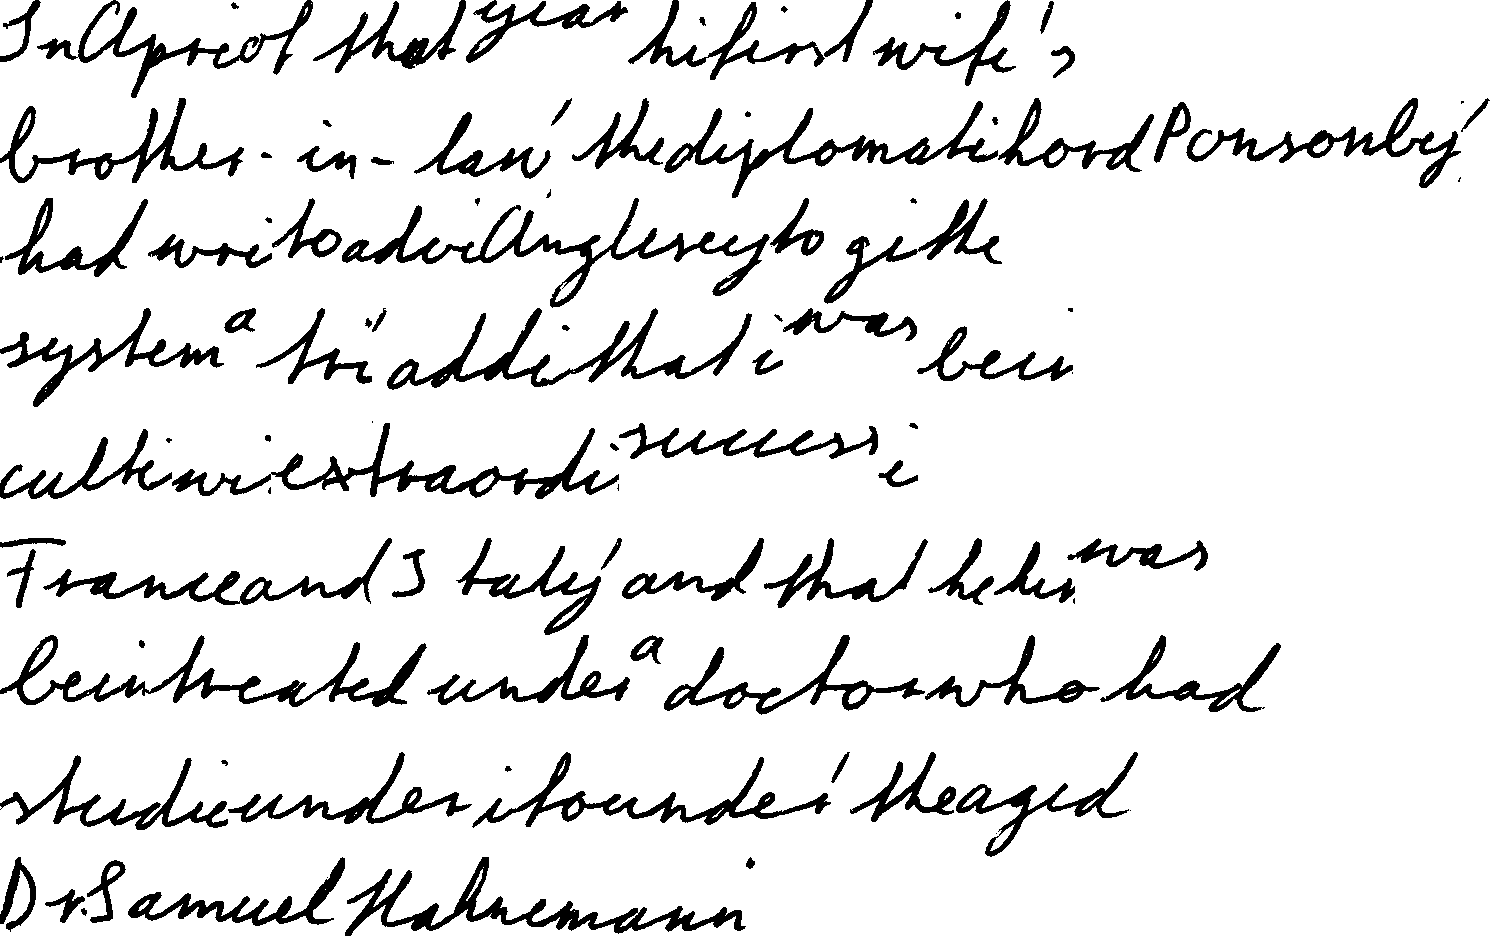 In Apri of that year hi first wife's
brother-in-law, the diplomati Lord Ponsonby,
had wri to advi Anglesey to gi the
system a tri, addi that i was bein
culti wi extraordi success i
France and Italy, and that he him was
bein treated under a doctor who had
studie under i founder, the aged
Dr. Samuel Hahnemann